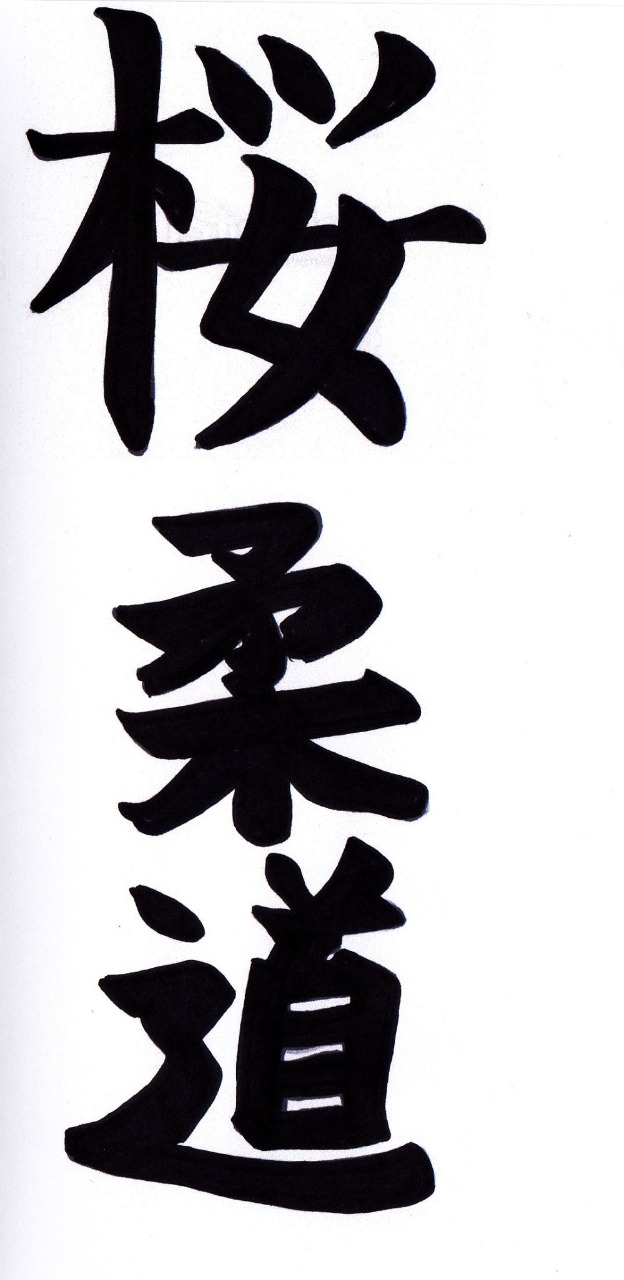 桜柔道